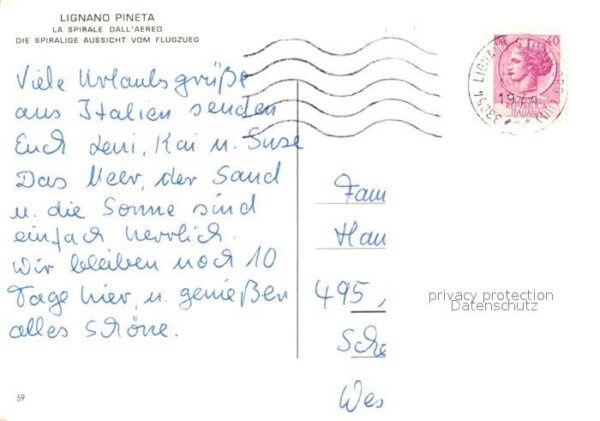 LIGNANO PINETA
LA SPIRALE DALL'AEREO
DIE SPIRALIGE AUSSICHT VOM FLUGZUEG
Viele Urlaubsgrüße
aus Italien senden
Euch Leni, Kai u. Suse
Das Meer, der Sand
u. die Sonne sind
einfach herrlich.
Wir bleiben noch 10
Tage hier, u. genießen
alles Schöne.
59
40
33054 LIGNANO
197
ITALIANE
Fam
Hau
495,
Sche
Wes
privacy protection
Datenschutz